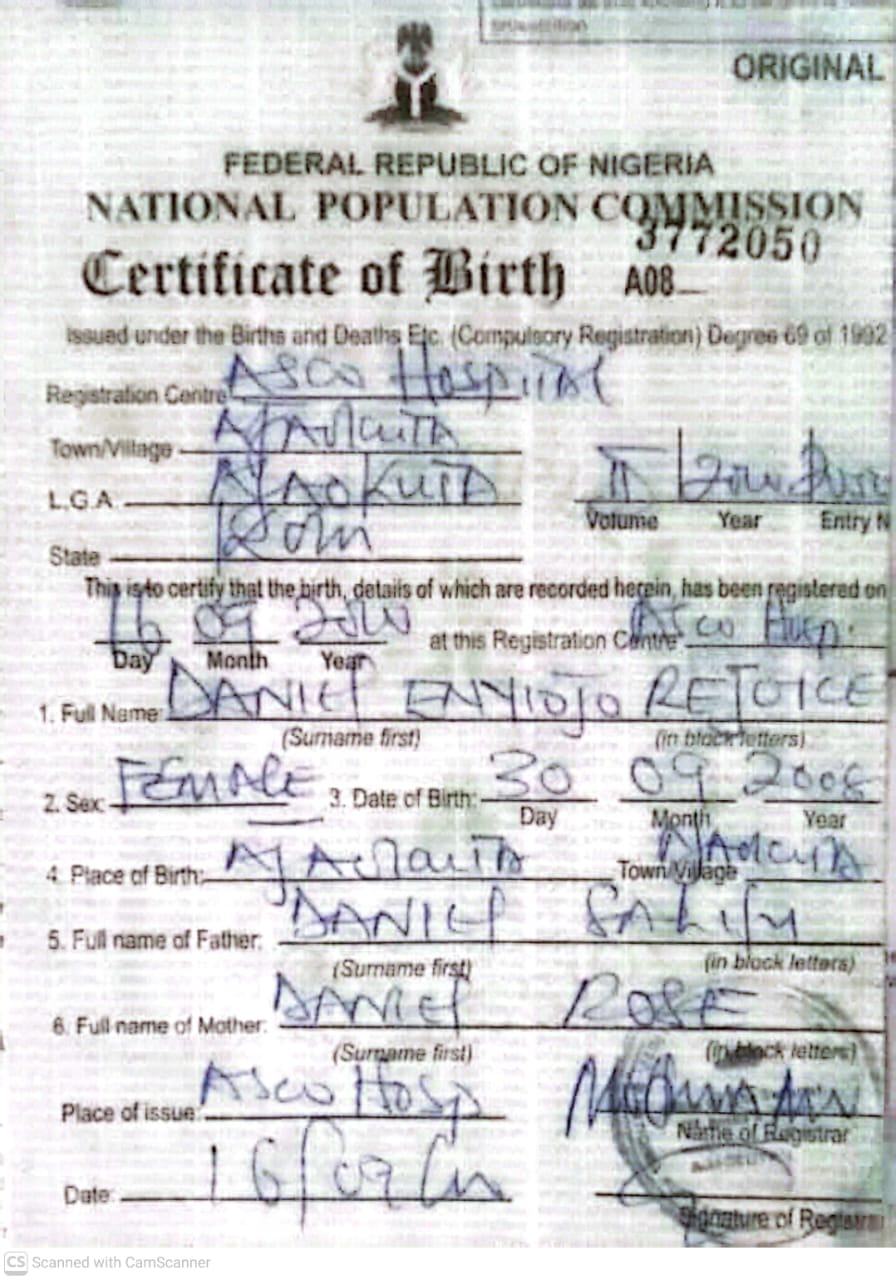 ORIGINAL
FEDERAL REPUBLIC OF NIGERIA
NATIONAL POPULATION COMMISSION
3772050
Certificate of Birth A08
Issued under the Births and Deaths Etc. (Compulsory Registration) Degree 69 of 1992
Registration Centre ASCO HOSPITAL
Town/Village AJAOKUTA
L.G.A AJAOKUTA II
Volume Year Entry N
State
This is to certify that the birth, details of which are recorded herein, has been registered on
16 09 2010 at this Registration Centre ASCO HOSP.
Day Month Year
1. Full Name: DANIEL ENYIOJO REJOICE
(Surname first) (in block letters)
2. Sex: FEMALE 3. Date of Birth: 30 09 2008
Day Month Year
4. Place of Birth: AJAOKUTA Town/Village AJAOKUTA
5. Full name of Father: DANIEL SALIFU
(Surname first) (in block letters)
6. Full name of Mother: DANIEL ROSE
(Surname first) (in block letters)
Place of issue: ASCO HOSP
Name of Registrar
Date: 16/09/
Signature of Registrar
CS Scanned with CamScanner